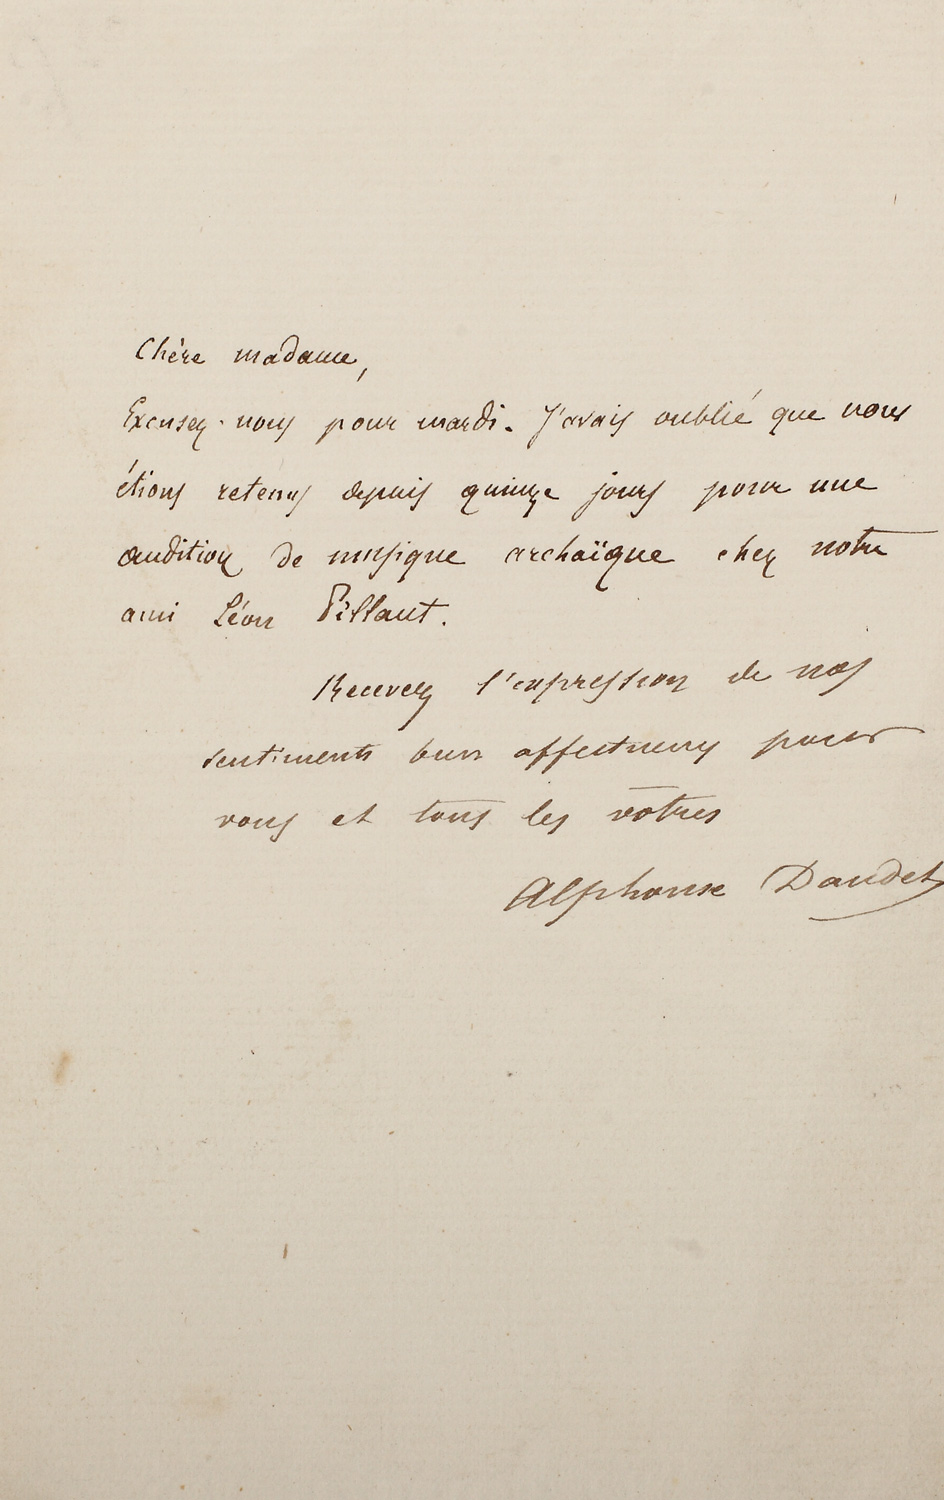 Chère madame,
Excusez-nous pour mardi. J'avais oublié que nous
étions retenus depuis quinze jours pour une
audition de musique archaïque chez notre
ami Léon Pillaut.
Recevez l'expression de nos
sentiments bien affectueux pour
vous et tous les vôtres
Alphonse Daudet